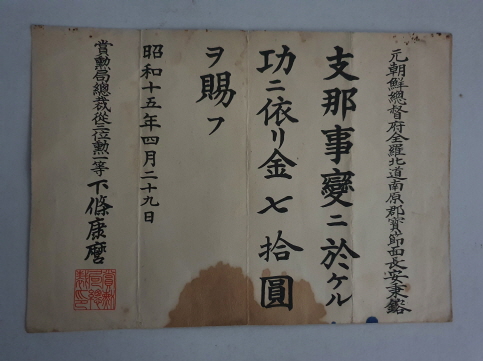 元朝鮮總督府全羅北道南原郡寶節面長安秉鎔
支那事變ニ於ケル
功ニ依リ金七拾圓
ヲ賜フ
昭和十五年四月二十九日
賞勲局總裁從三位勲一等下條康麿